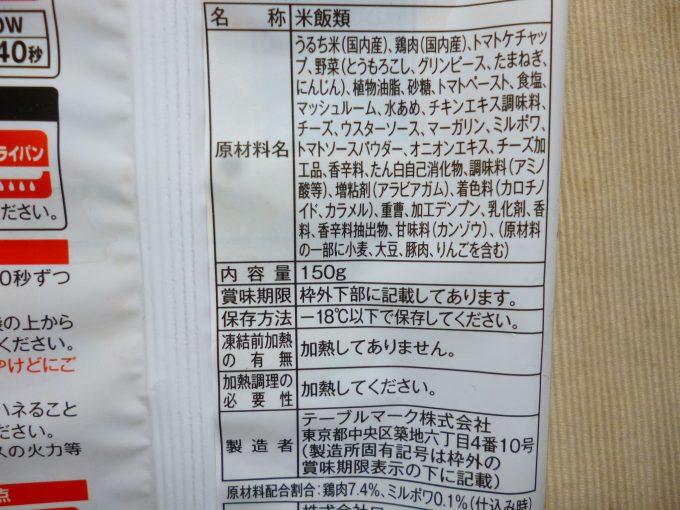 0W
40秒
ライパン
ださい。
0秒ずつ
の上から
ください。
やけどにご
ハネること
ださい。
スの火力等
点
名 称 米飯類
原材料名
うるち米(国内産)、鶏肉(国内産)、トマトケチャッ
プ、野菜(とうもろこし、グリンピース、たまねぎ、
にんじん)、植物油脂、砂糖、トマトペースト、食塩、
マッシュルーム、水あめ、チキンエキス調味料、
チーズ、ウスターソース、マーガリン、ミルポワ、
トマトソースパウダー、オニオンエキス、チーズ加
工品、香辛料、たん白自己消化物、調味料(アミノ
酸等)、増粘剤(アラビアガム)、着色料(カロチノ
イド、カラメル)、重曹、加工デンプン、乳化剤、香
料、香辛料抽出物、甘味料(カンゾウ)、(原材料
の一部に小麦、大豆、豚肉、りんごを含む)
内容量 150g
賞味期限 枠外下部に記載してあります。
保存方法 −18℃以下で保存してください。
凍結前加熱
の有無
加熱してありません。
加熱調理の
必要性
加熱してください。
製造者
テーブルマーク株式会社
東京都中央区築地六丁目4番10号
(製造所固有記号は枠外の
賞味期限表示の下に記載)
原材料配合割合:鶏肉7.4%、ミルポワ0.1%(仕込み時)